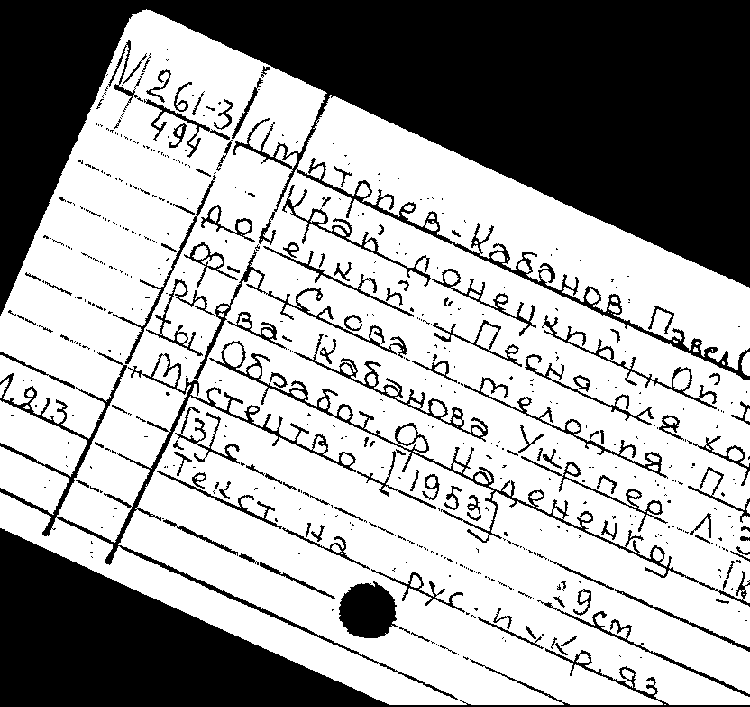 М 261-3
494
Дмитриев-Кабанов, Павел
Край донецкий. [„Ой
донецкий." Песня для
ф-п. [Слова и мелодия П.
риева-Кабанова Укр пер Л.
ты. Обработ. Ф Надененко]
„Мистецтво", [1953].
[3] с. 29 см.
Текст. на рус. и укр. яз
1.213